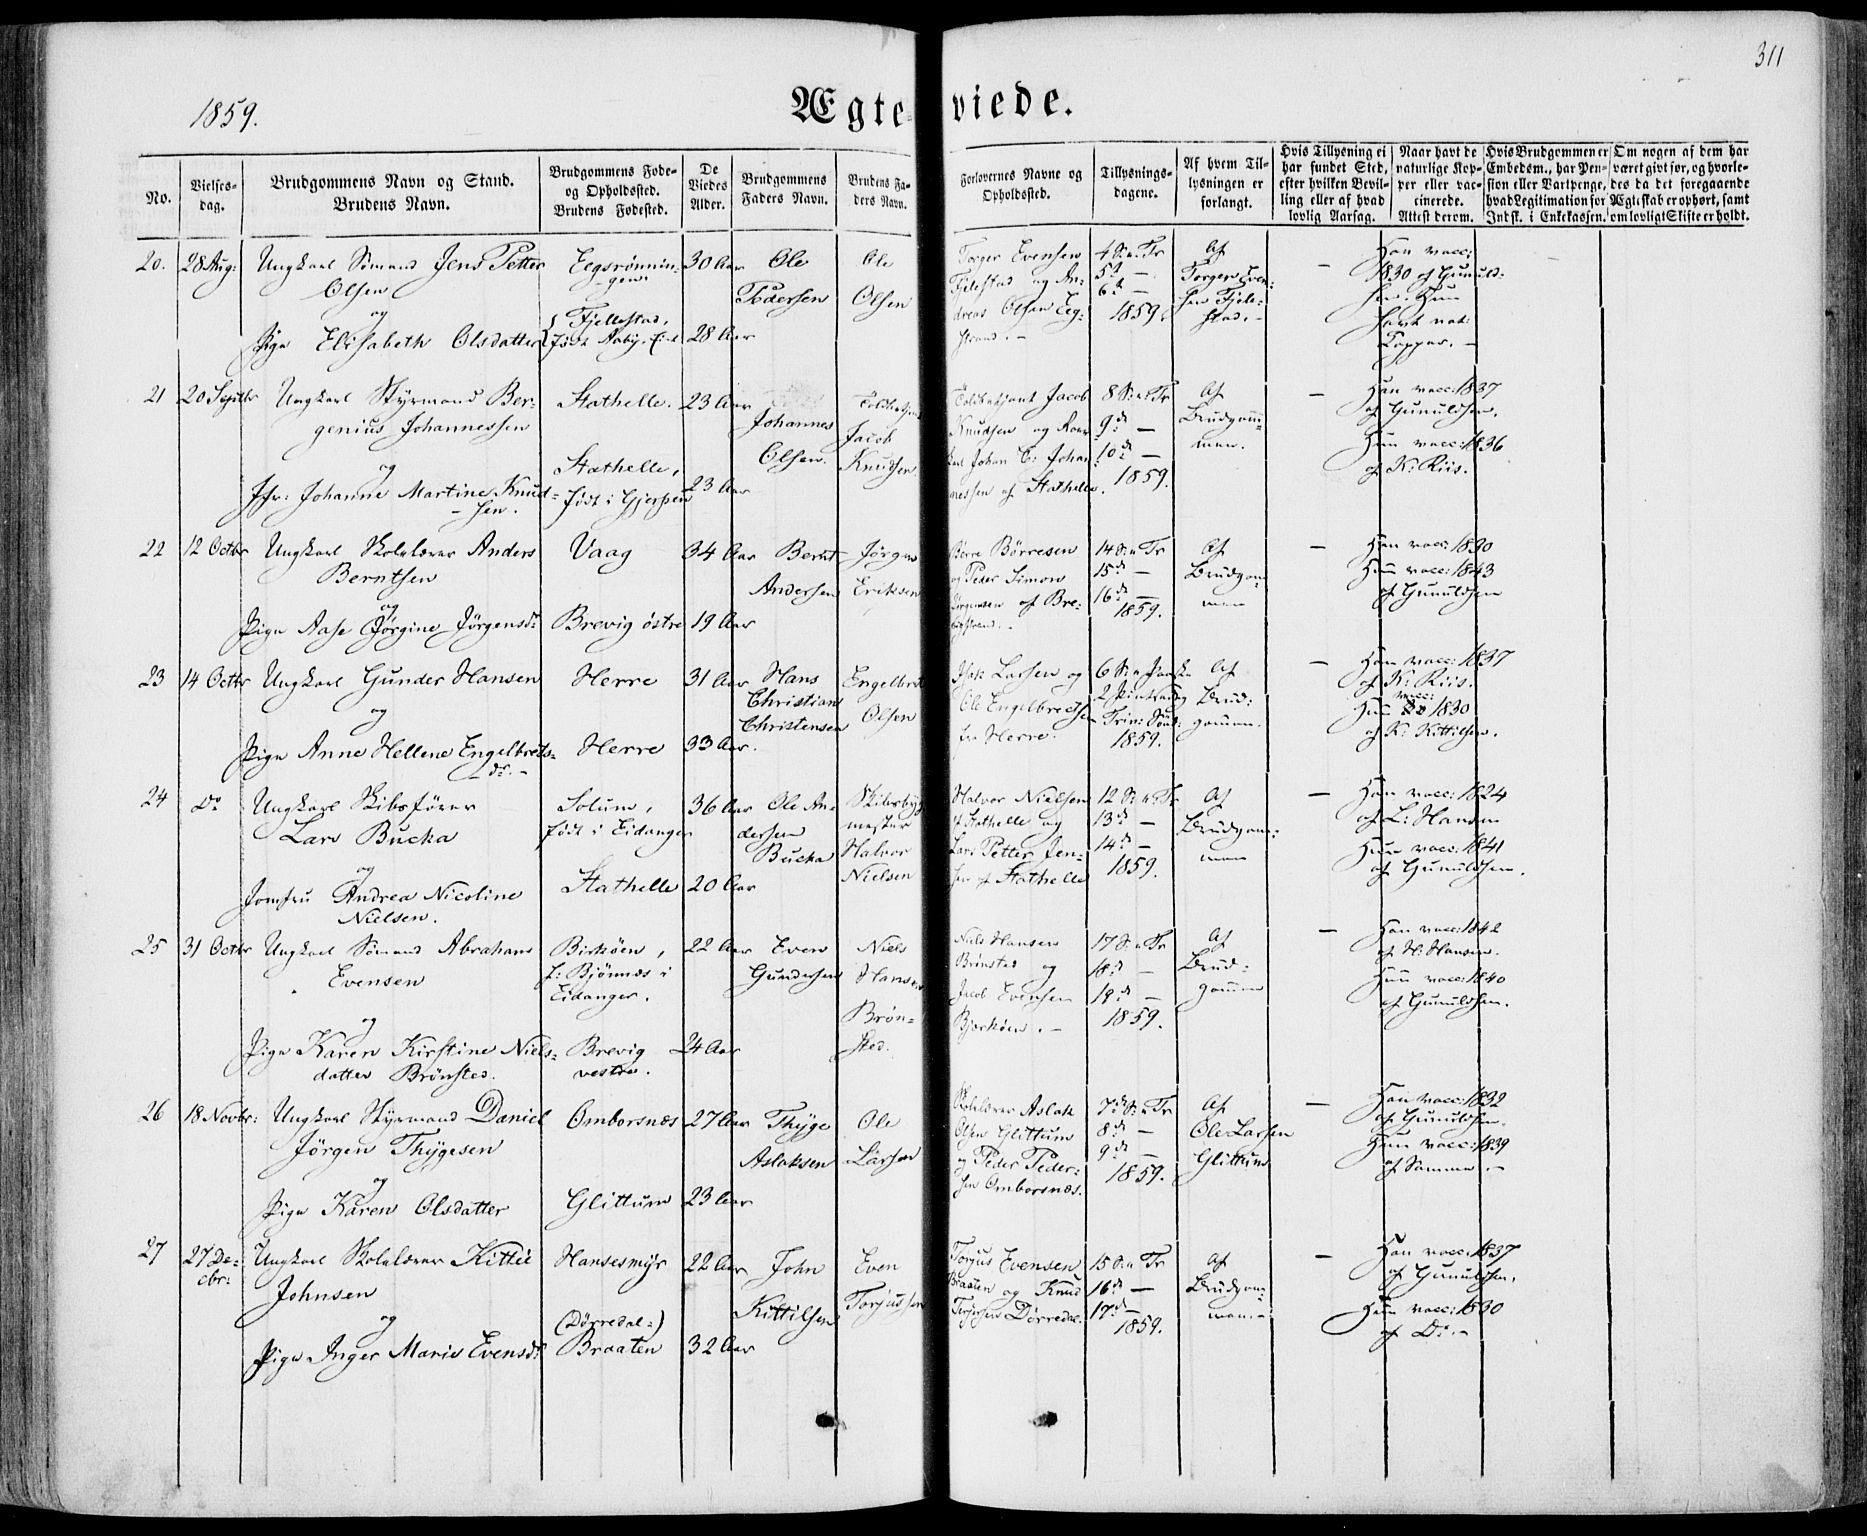 311
1859.
Ægte-viede.
No.
Vielses-
dag.
Brudgommens Navn og Stand.
Brudens Navn.
Brudgommens Føde-
og Opholdssted.
Brudens Fødested.
De
Viedes
Alder.
Brudgommens
Faders Navn.
Brudens Fa-
ders Navn.
Forlovernes Navne og
Opholdssted.
Tillysnings-
dagene.
Af hvem Til-
lysningen er
forlangt.
Hvis Tillysning ei
har fundet Sted,
efter hvilken Bevil-
ling eller af hvad
lovlig Aarsag.
Naar havt de
naturlige Kop-
per eller vac-
cinerede.
Attest derom.
Hvis Brudgommen er
Embedsm., har Pen-
sion eller Vartpenge,
hvad Legitimation for
Indsk. i Enkekassen.
Om nogen af dem har
været gift før, og hvorle-
des da det foregaaende
Ægteskab er ophørt, samt
om lovligt Skifte er holdt.
20. 28 Aug: Ungkarl Sømand Jens Petter
Olsen
og
Pige Elisabeth Olsdatter
Eegsrønnin-
gen.
Fjellestad,
født Aaby
30 Aar
28 Aar
Ole
Pedersen
Ole
Olsen
Torger Evensen
Fjelestad og An-
dreas Olsen Eeg-
strand.
4 S. e. Tr
5te —
6te —
1859.
Af
Torger Even-
sen Fjele-
stad. —
—
Han vacc:
1830 af Gunuld-
sen. Hun
havt nat:
Kopper. —
21 20 Septbr Ungkarl Styrmand Ber-
genius Johannessen
og
Jfr: Johanne Martine Knud-
sen.
Stathelle.
Stathelle,
født i Gjerpen
23 Aar
23 Aar
Johannes
Olsen.
Jacob
Knudsen
Toldbetjent Jacob
Knudsen og
Johan C: Johan
nessen af Stathelle.
8 S. e. Tr
9de —
10de —
1859.
Af
Brudgom-
men.
—
Han vacc: 1837
af Gunuldsen.
Hun vacc: 1836
af K. Riis.
22 12 Octbr Ungkarl Skolelærer Anders
Berntsen
og
Pige Aase Jørgine Jørgensdr
Vaag
Brevig østre
34 Aar
19 Aar
Bernt
Andersen
Jørgen
Eriksen
Børre Børresen
og Peder Simon
Jørgensen af Bre-
vigstrand. —
14 S. e. Tr
15de —
16de —
1859.
Af
Brudgom-
men
—
Han vacc: 1830
Hun vacc: 1843
af Gunuldsen
23 14 Octbr Ungkarl Gunder Hansen
og
Pige Anne Hellene Engelbrets-
dr. —
Herre
Herre
31 Aar
33 Aar.
Hans
Christian
Christensen
Engelbret
Olsen
Isak Larsen og
Ole Engelbredtsen
fra Herre.
6 S. e. Paaske
2 Pintsedag
Trin: Sønd:
1859.
Af
Brud-
gommen.
—
Han vacc: 1837
af K. Riis.
Hun vacc: 1830
af K. Kittilsen.
24 Do Ungkarl Skibsfører
Lars Bucka
og
Jomfru Andrea Nicoline
Nielsen.
Solum,
født i Eidanger
Stathelle
36 Aar
20 Aar
Ole An-
dersen
Bucka
Skibsbyg
mester
Halvor
Nielsen
Halvor Nielsen
af Stathelle og
Lars Petter Jen-
sen af Stathelle
12 S. e. Tr
13de —
14de —
1859.
Af
Brudgom-
men
—
Han vacc: 1824
af L: Hansen
Hun vacc: 1841
af Gunuldsen.
25 31 Octbr Ungkarl Sømand Abraham
Evensen
og
Pige Karen Kirstine Niels-
datter Brønsted.
Birkøen,
f: Bjønnæs i
Eidanger.
Brevig
vestre.
22 Aar
24 Aar
Even
Gundersen
Niels
Hansen
Brøn-
sted.
Niels Hansen
Brønsted og
Jacob Evensen
Bjerkøen. —
17 S. e. Tr
18de —
19de —
1859.
Af
Brud-
gommen
—
Han vacc: 1842
af H: Hansen.
Hun vacc: 1840
af Gunuldsen.
26 18 Novbr: Ungkarl Styrmand Daniel
Jørgen Thygesen
og
Pige Karen Olsdatter
Omborsnæs
Glittum
27 Aar
23 Aar
Thyge
Aslaksen
Ole
Larsen
Skolelærer Aslak
Olsen Glittum
og Peder Peder-
sen Omborsnæs.
7de S. e. Tr
8de —
9de —
1859.
Af
Ole Larsen
Glittum
—
Han vacc: 1832
af Gunuldsen.
Hun vacc: 1839
af Samme. —
27 27 De-
cbr: Ungkarl Skolelærer Kittil
Johnsen
og
Pige Inger Marie Evensdr
Hansesmyr
(Dørredal:)
Braaten
22 Aar
32 Aar
John
Kittilsen
Even
Torjussen
Torjus Evensen
Braaten og Knud
Dørredal.
15 S. e. Tr
16de —
17de —
1859.
Af
Brudgom-
men. —
—
Han vacc: 1837
af Gunuldsen.
Hun vacc: 1830
af Do. —